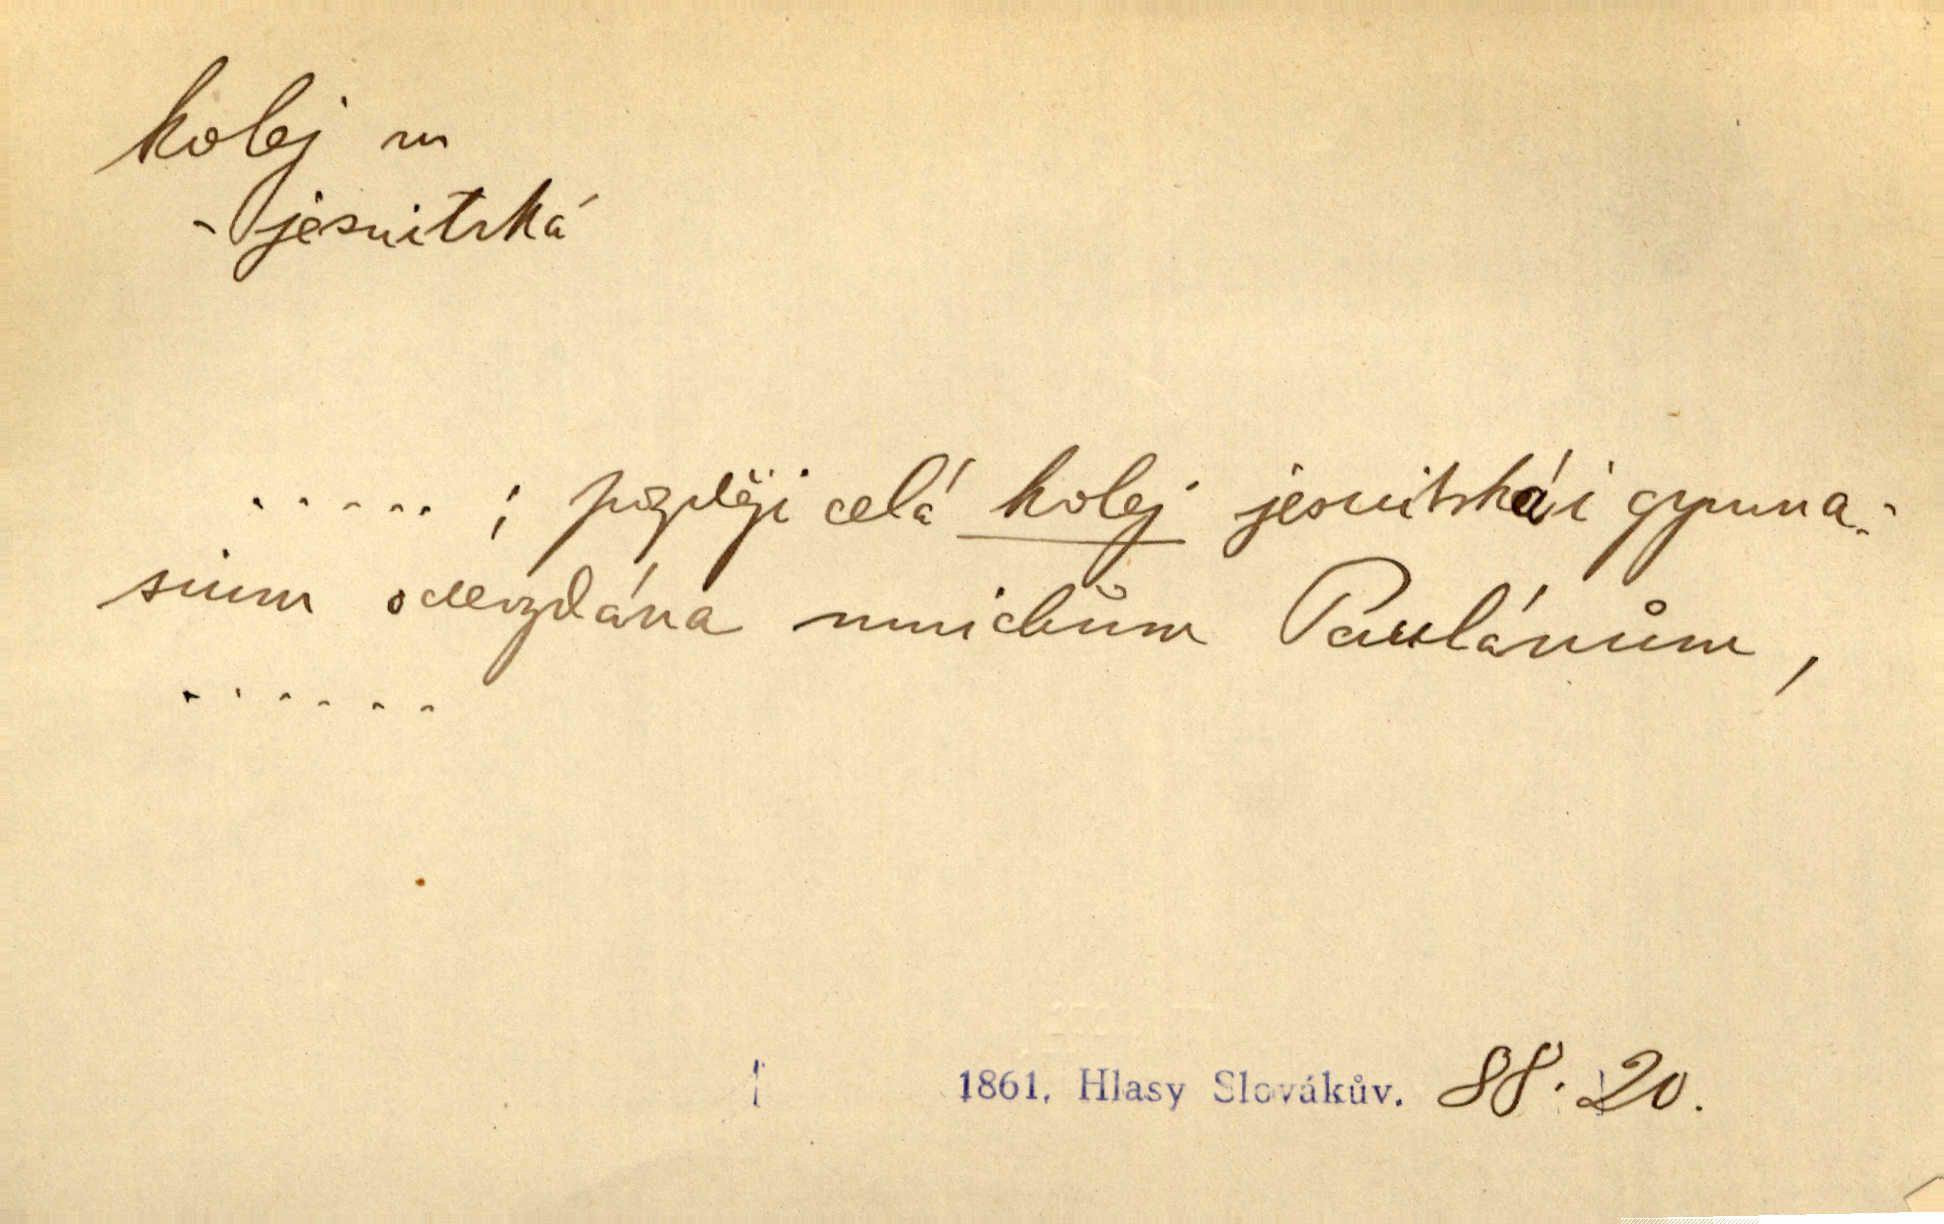 kolej m
- jesuitská
. . . . . ; později celá kolej jesuitská i gymna-
sium odevzdána mnichům Paulánům,
. . . . . .
1861, Hlasy Slovákův. 88. 20.